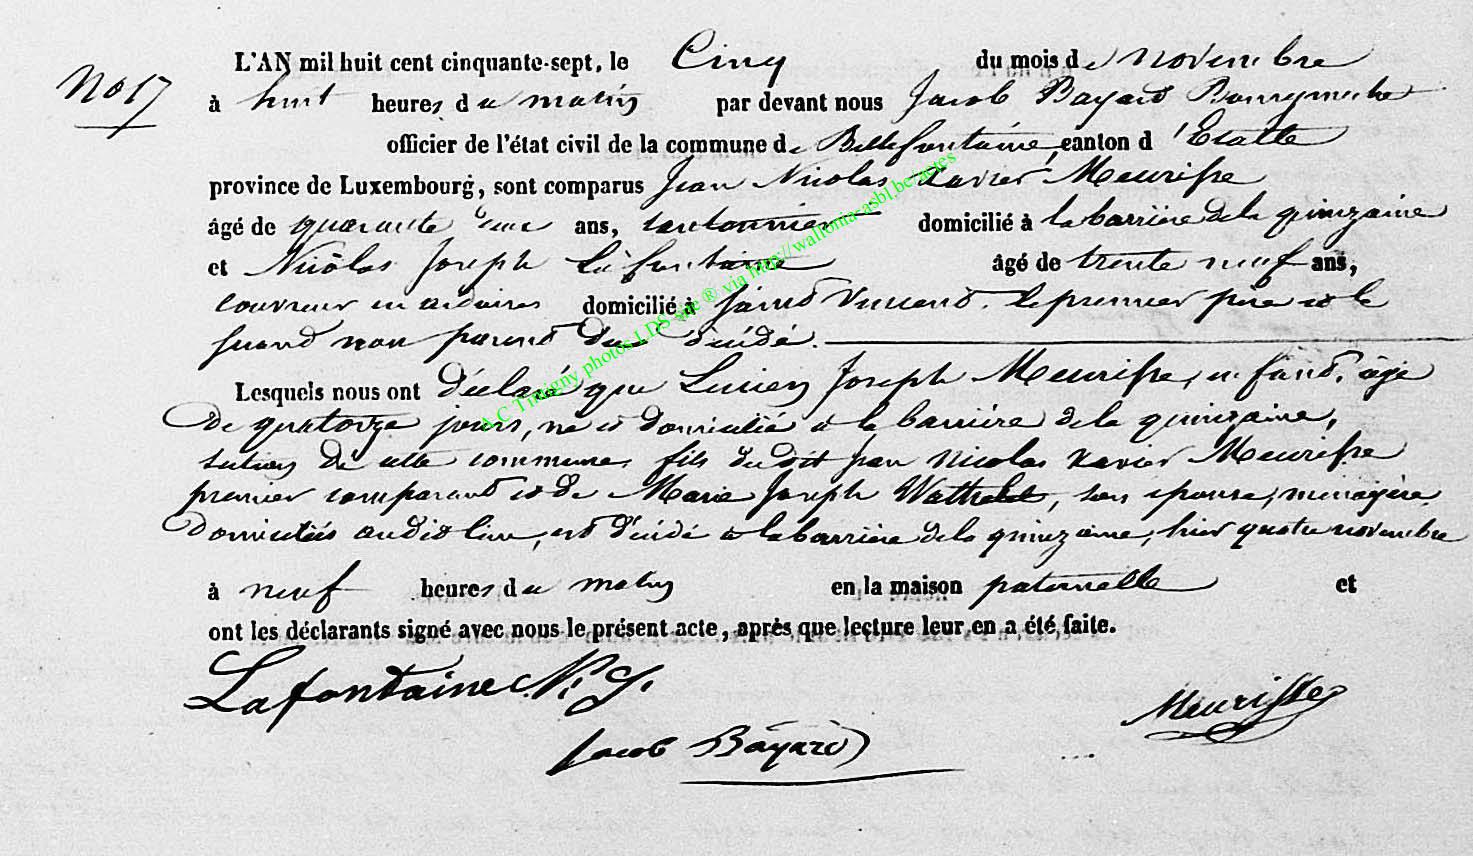 No 17
L'AN mil huit cent cinquante-sept, le Cinq du mois de novembre
à huit heures du matin par devant nous Jacob Bayard Bourgmestre
officier de l'état civil de la commune de Bellefontaine, canton d'Etalle
province de Luxembourg, sont comparus Jean Nicolas Xavier Meurisse
âgé de quarante un ans, cantonnier domicilié à la barrière de la quinzaine
et Nicolas Joseph Lafontaine âgé de trente neuf ans,
couvreur en ardoises domicilié à Saint Vincent. Le premier père et le
second non parent du décédé.
Lesquels nous ont déclaré que Lucien Joseph Meurisse, enfant, âgé
de quatorze jours, né et domicilié à la barrière de la quinzaine,
section de cette commune, fils du dit Jean Nicolas Xavier Meurisse
premier comparant et de Marie Joseph Wathelet, son épouse, ménagère,
domiciliés audit lieu, est décédé à la barrière de la quinzaine, hier quatre novembre
à neuf heures du matin en la maison paternelle et
ont les déclarants signé avec nous le présent acte, après que lecture leur en a été faite.
Lafontaine N. J.
Meurisse
Jacob Bayard
A.C Tintigny photos LDS site ® via http://wallonia-asbl.be/actes